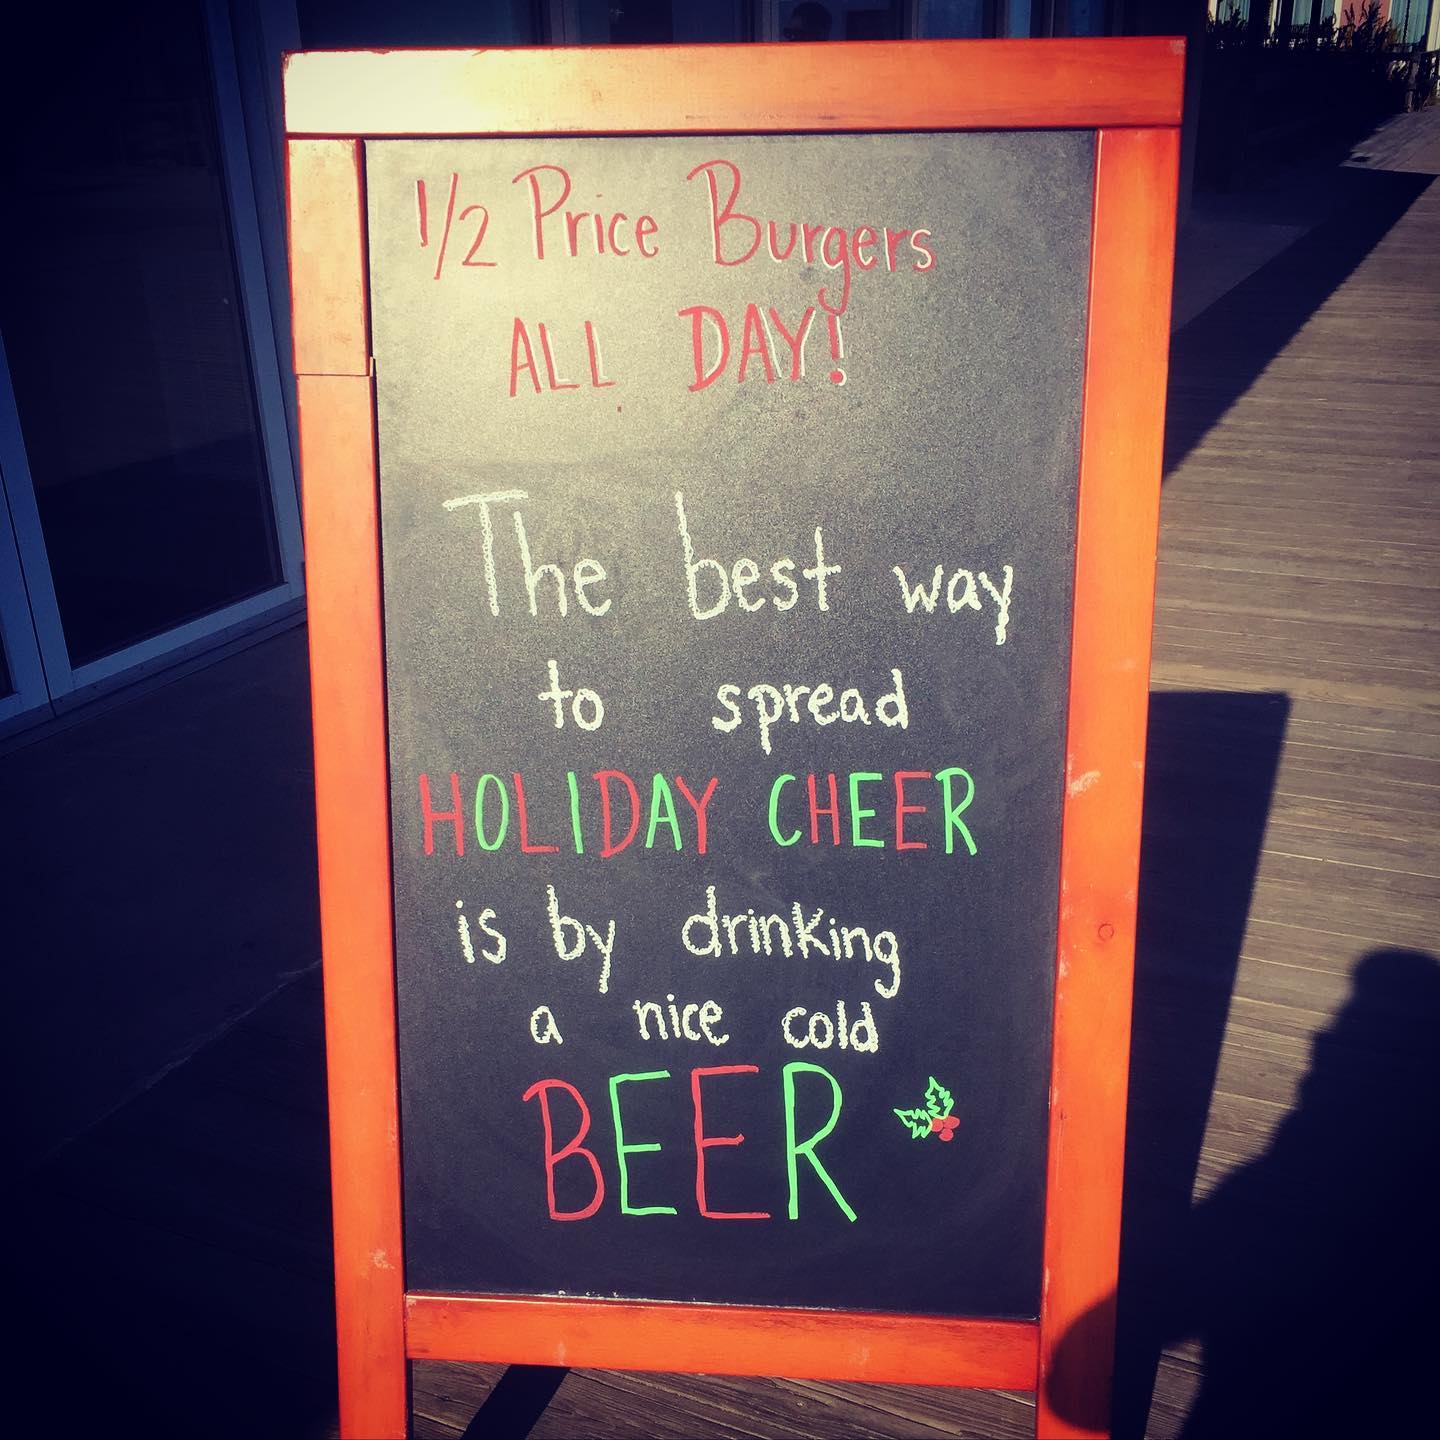 1/2 Price Burgers
ALL DAY!
The best way
to spread
HOLIDAY CHEER
is by drinking
a nice cold
BEER